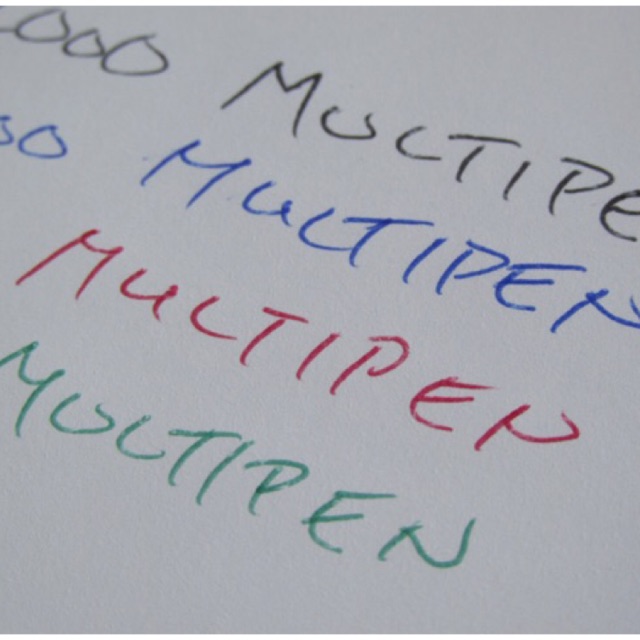 000 MULTIPE
00 MULTIPEN
MULTIPEN
MULTIPEN